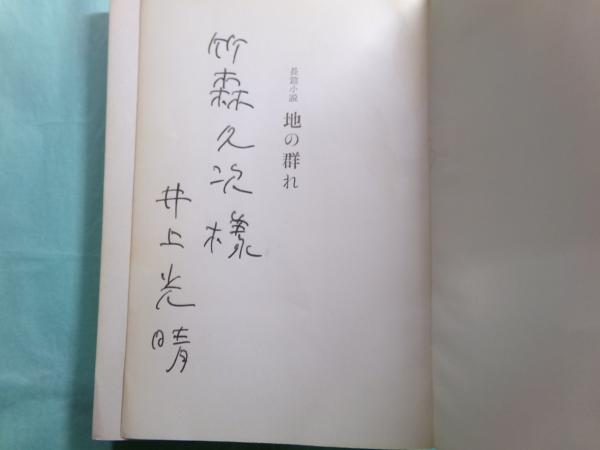 長篇小説 地の群れ
竹森久次様
井上光晴